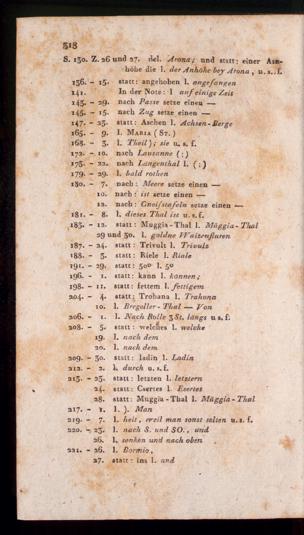 518
S. 130. Z. 26 und 27. del. Arona; und statt: einer Anhöhe
die l. der Anhöhe bey Arona, u. s. f.
136. - 15. statt: angehoben l. angefangen
141. In der Note: l auf einige Zeit
145. - 29. nach Passe setze einen —
145. - 15. nach Zug setze einen —
147. - 23. statt: Aschen l. Achsen-Berge
165. - 9. l. MARIA (ST.)
168. - 3. l. Theil); sie u. s. f.
172. - 10. nach Lausanne (:)
175. - 22. nach Langenthal l. (:)
179. - 29. l. bald rothen
180. - 7. nach: Meere setze einen —
10. nach: ist setze einen —
12. nach: Gneisstafeln setze einen —
181. - 8. l. dieses Thal ist u. s. f.
183. - 12. statt: Muggia-Thal l. Mäggia-Thal
29 und 30. l. goldne Waizenfluren
187. - 24. statt: Trivult l. Trivulz
188. - 3. statt: Riele l. Riale
191. - 29. statt: 50° l. 5°
196. - 1. statt: kann l. konnen;
198. - 11. statt: fettem l. fettigem
204. - 4. statt: Trohana l. Trahona
10. l. Bregaller-Thal — Von
206. - 1. l. Nach Rolle 3 St. längs u. s. f.
208. - 5. statt: welches l. welche
19. l. nach dem
20. l. nach dem
209. - 30. statt: ladin l. Ladin
212. - 2. l. durch u. s. f.
213. - 23. statt: letzten l. letztern
24. statt: Csertes l. Esertes
28. statt: Muggia-Thal l. Mäggia-Thal
217. - 1. l. ). Man
219. - 7. l. heis, weil man sonst selten u. s. f.
220. - 23. l. nach S. und SO., und
26. l. senken und nach oben
221. - 26. l. Bormio,
27. statt: ins l. und